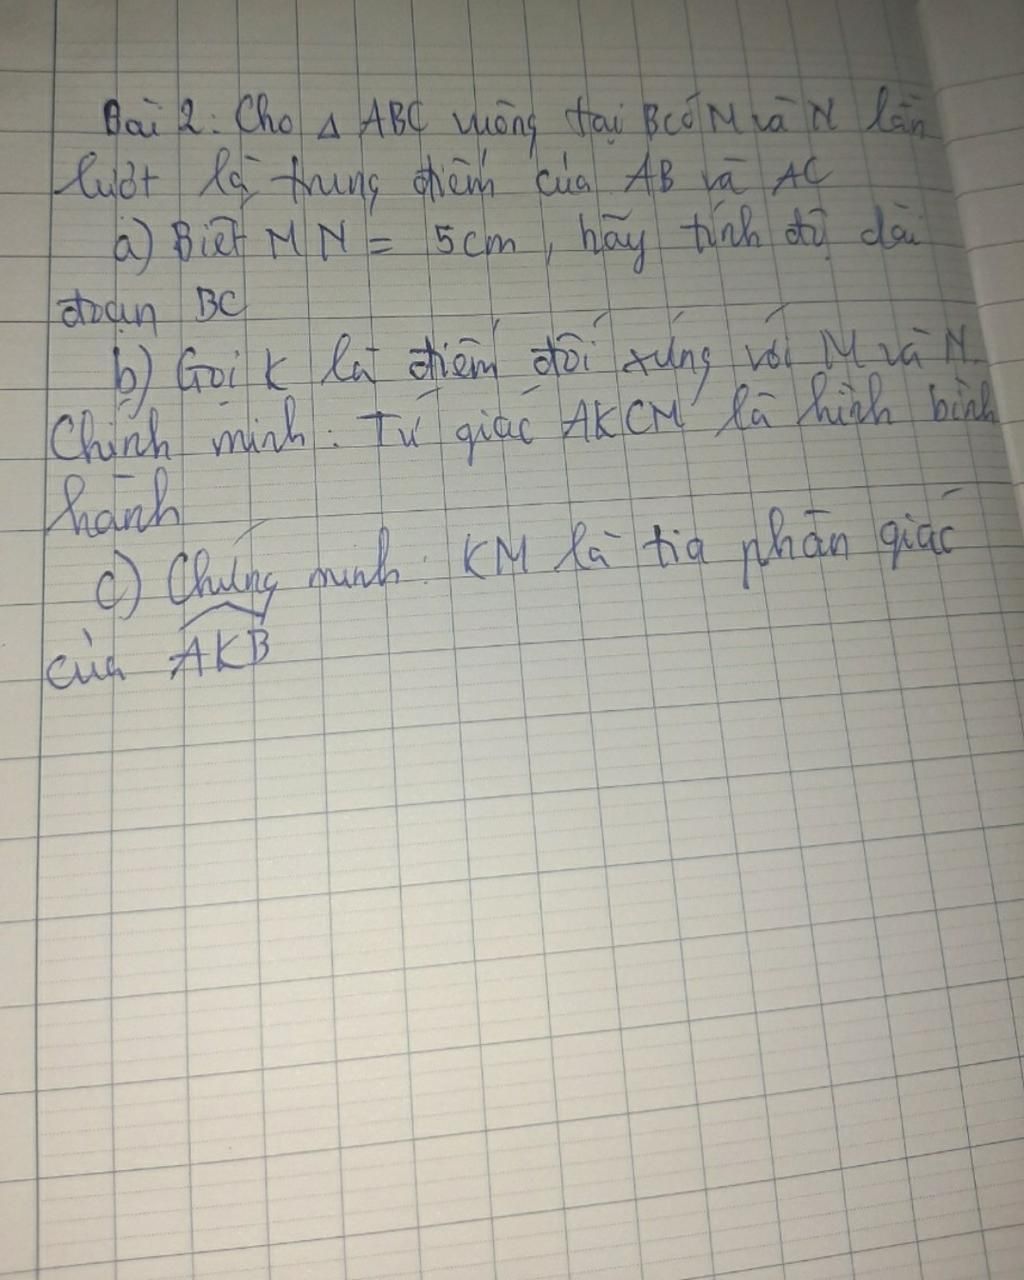 Bài 2: Cho Δ ABC vuông tại B có M và N lần
lượt là trung điểm của AB và AC
a) Biết MN = 5cm, hãy tính độ dài
đoạn BC
b) Gọi K là điểm đối xứng với M và N.
Chính minh: Tứ giác AKCM là hình bình
hành
c) Chứng minh: KM là tia phân giác
của AKB